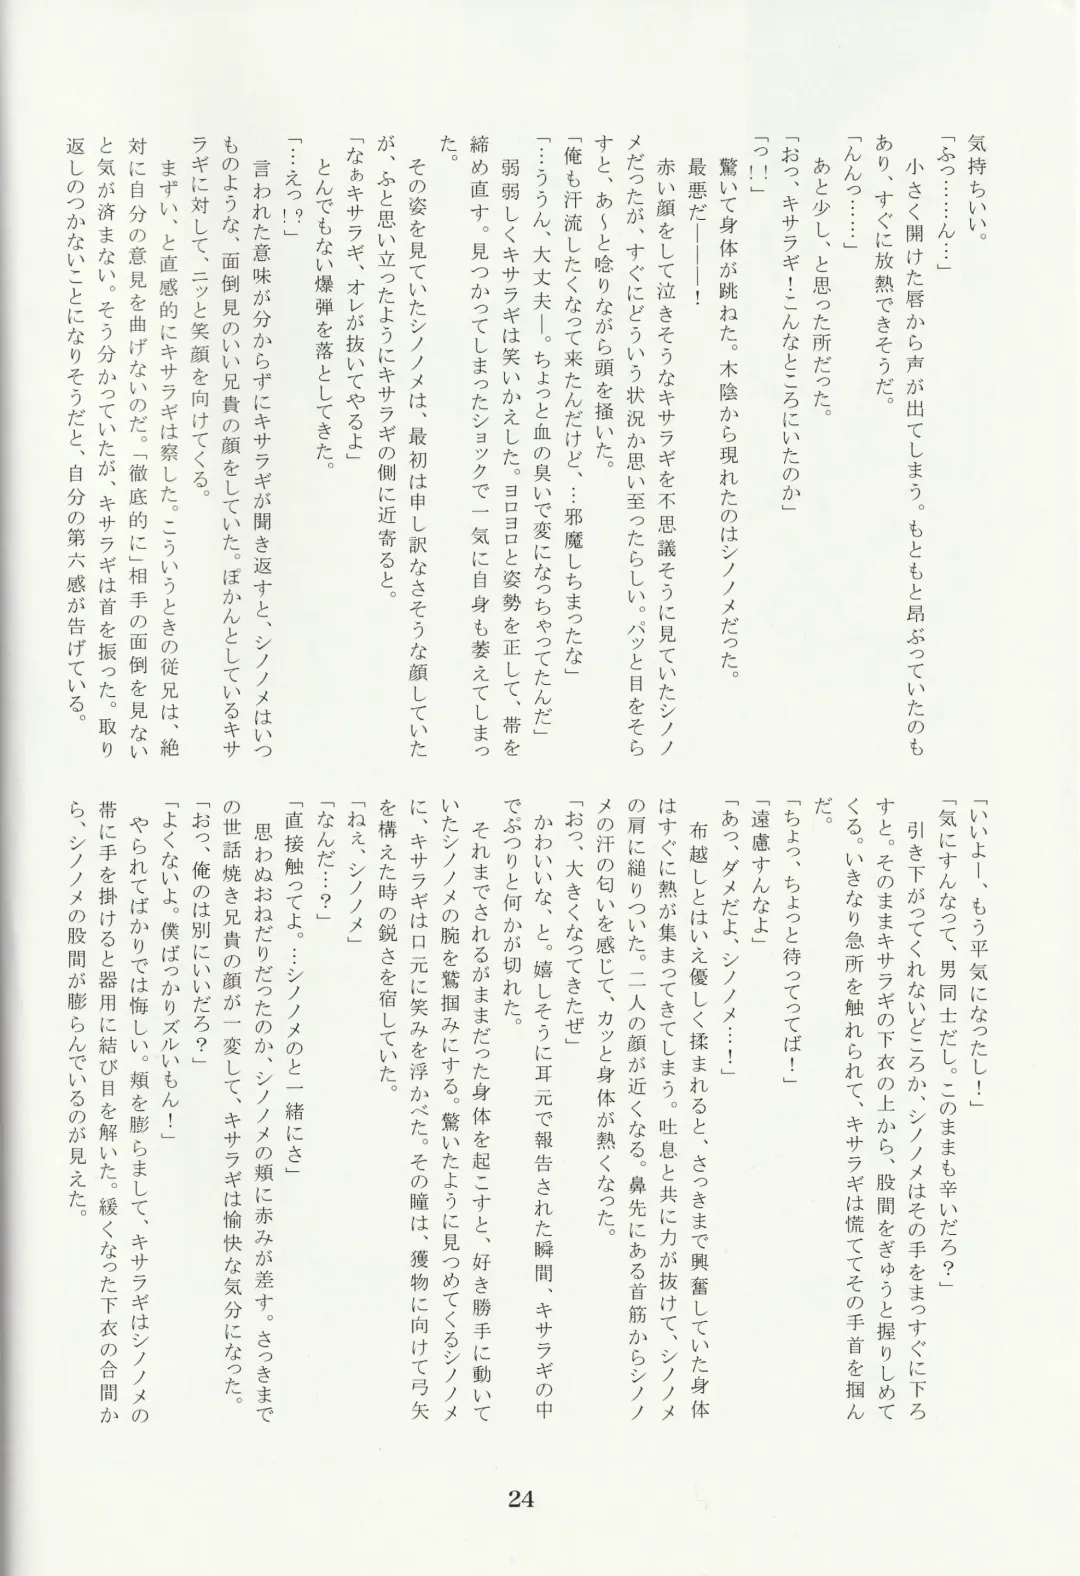 気持ちいい。
「ふっ……ん…」
小さく開けた唇から声が出てしまう。もともと昂ぶっていたのも
あり、すぐに放熱できそうだ。
「んんっ……」
あと少し、と思った所だった。
「おっ、キサラギ！こんなところにいたのか」
「っ！！」
驚いて身体が跳ねた。木陰から現れたのはシノノメだった。
最悪だ―――！
赤い顔をして泣きそうなキサラギを不思議そうに見ていたシノノ
メだったが、すぐにどういう状況か思い至ったらしい。パッと目をそら
すと、あ～と唸りながら頭を掻いた。
「俺も汗流したくなって来たんだけど、…邪魔しちまったな」
「…ううん、大丈夫―。ちょっと血の臭いで変になっちゃってたんだ」
弱弱しくキサラギは笑いかえした。ヨロヨロと姿勢を正して、帯を
締め直す。見つかってしまったショックで一気に自身も萎えてしまっ
た。
その姿を見ていたシノノメは、最初は申し訳なさそうな顔していた
が、ふと思い立ったようにキサラギの側に近寄ると。
「なぁキサラギ、オレが抜いてやるよ」
とんでもない爆弾を落としてきた。
「…えっ！？」
言われた意味が分からずにキサラギが聞き返すと、シノノメはいつ
ものような、面倒見のいい兄貴の顔をしていた。ぽかんとしているキサ
ラギに対して、ニッと笑顔を向けてくる。
まずい、と直感的にキサラギは察した。こういうときの従兄は、絶
対に自分の意見を曲げないのだ。「徹底的に」相手の面倒を見ない
と気が済まない。そう分かっていたが、キサラギは首を振った。取り
返しのつかないことになりそうだと、自分の第六感が告げている。
「いいよー、もう平気になったし！」
「気にすんなって、男同士だし。このままも辛いだろ？」
引き下がってくれないどころか、シノノメはその手をまっすぐに下ろ
すと。そのままキサラギの下衣の上から、股間をぎゅうと握りしめて
くる。いきなり急所を触れられて、キサラギは慌ててその手首を掴ん
だ。
「ちょっ、ちょっと待ってってば！」
「遠慮すんなよ」
「あっ、ダメだよ、シノノメ…！」
布越しとはいえ優しく揉まれると、さっきまで興奮していた身体
はすぐに熱が集まってきてしまう。吐息と共に力が抜けて、シノノメ
の肩に縋りついた。二人の顔が近くなる。鼻先にある首筋からシノノ
メの汗の匂いを感じて、カッと身体が熱くなった。
「おっ、大きくなってきたぜ」
かわいいな、と。嬉しそうに耳元で報告された瞬間、キサラギの中
でぷつりと何かが切れた。
それまでされるがままだった身体を起こすと、好き勝手に動いて
いたシノノメの腕を鷲掴みにする。驚いたように見つめてくるシノノメ
に、キサラギは口元に笑みを浮かべた。その瞳は、獲物に向けて弓矢
を構えた時の鋭さを宿していた。
「ねぇ、シノノメ」
「なんだ…？」
「直接触ってよ。…シノノメのと一緒にさ」
思わぬおねだりだったのか、シノノメの頬に赤みが差す。さっきまで
の世話焼き兄貴の顔が一変して、キサラギは愉快な気分になった。
「おっ、俺のは別にいいだろ？」
「よくないよ。僕ばっかりズルいもん！」
やられてばかりでは悔しい。頬を膨らまして、キサラギはシノノメの
帯に手を掛けると器用に結び目を解いた。緩くなった下衣の合間か
ら、シノノメの股間が膨らんでいるのが見えた。
24